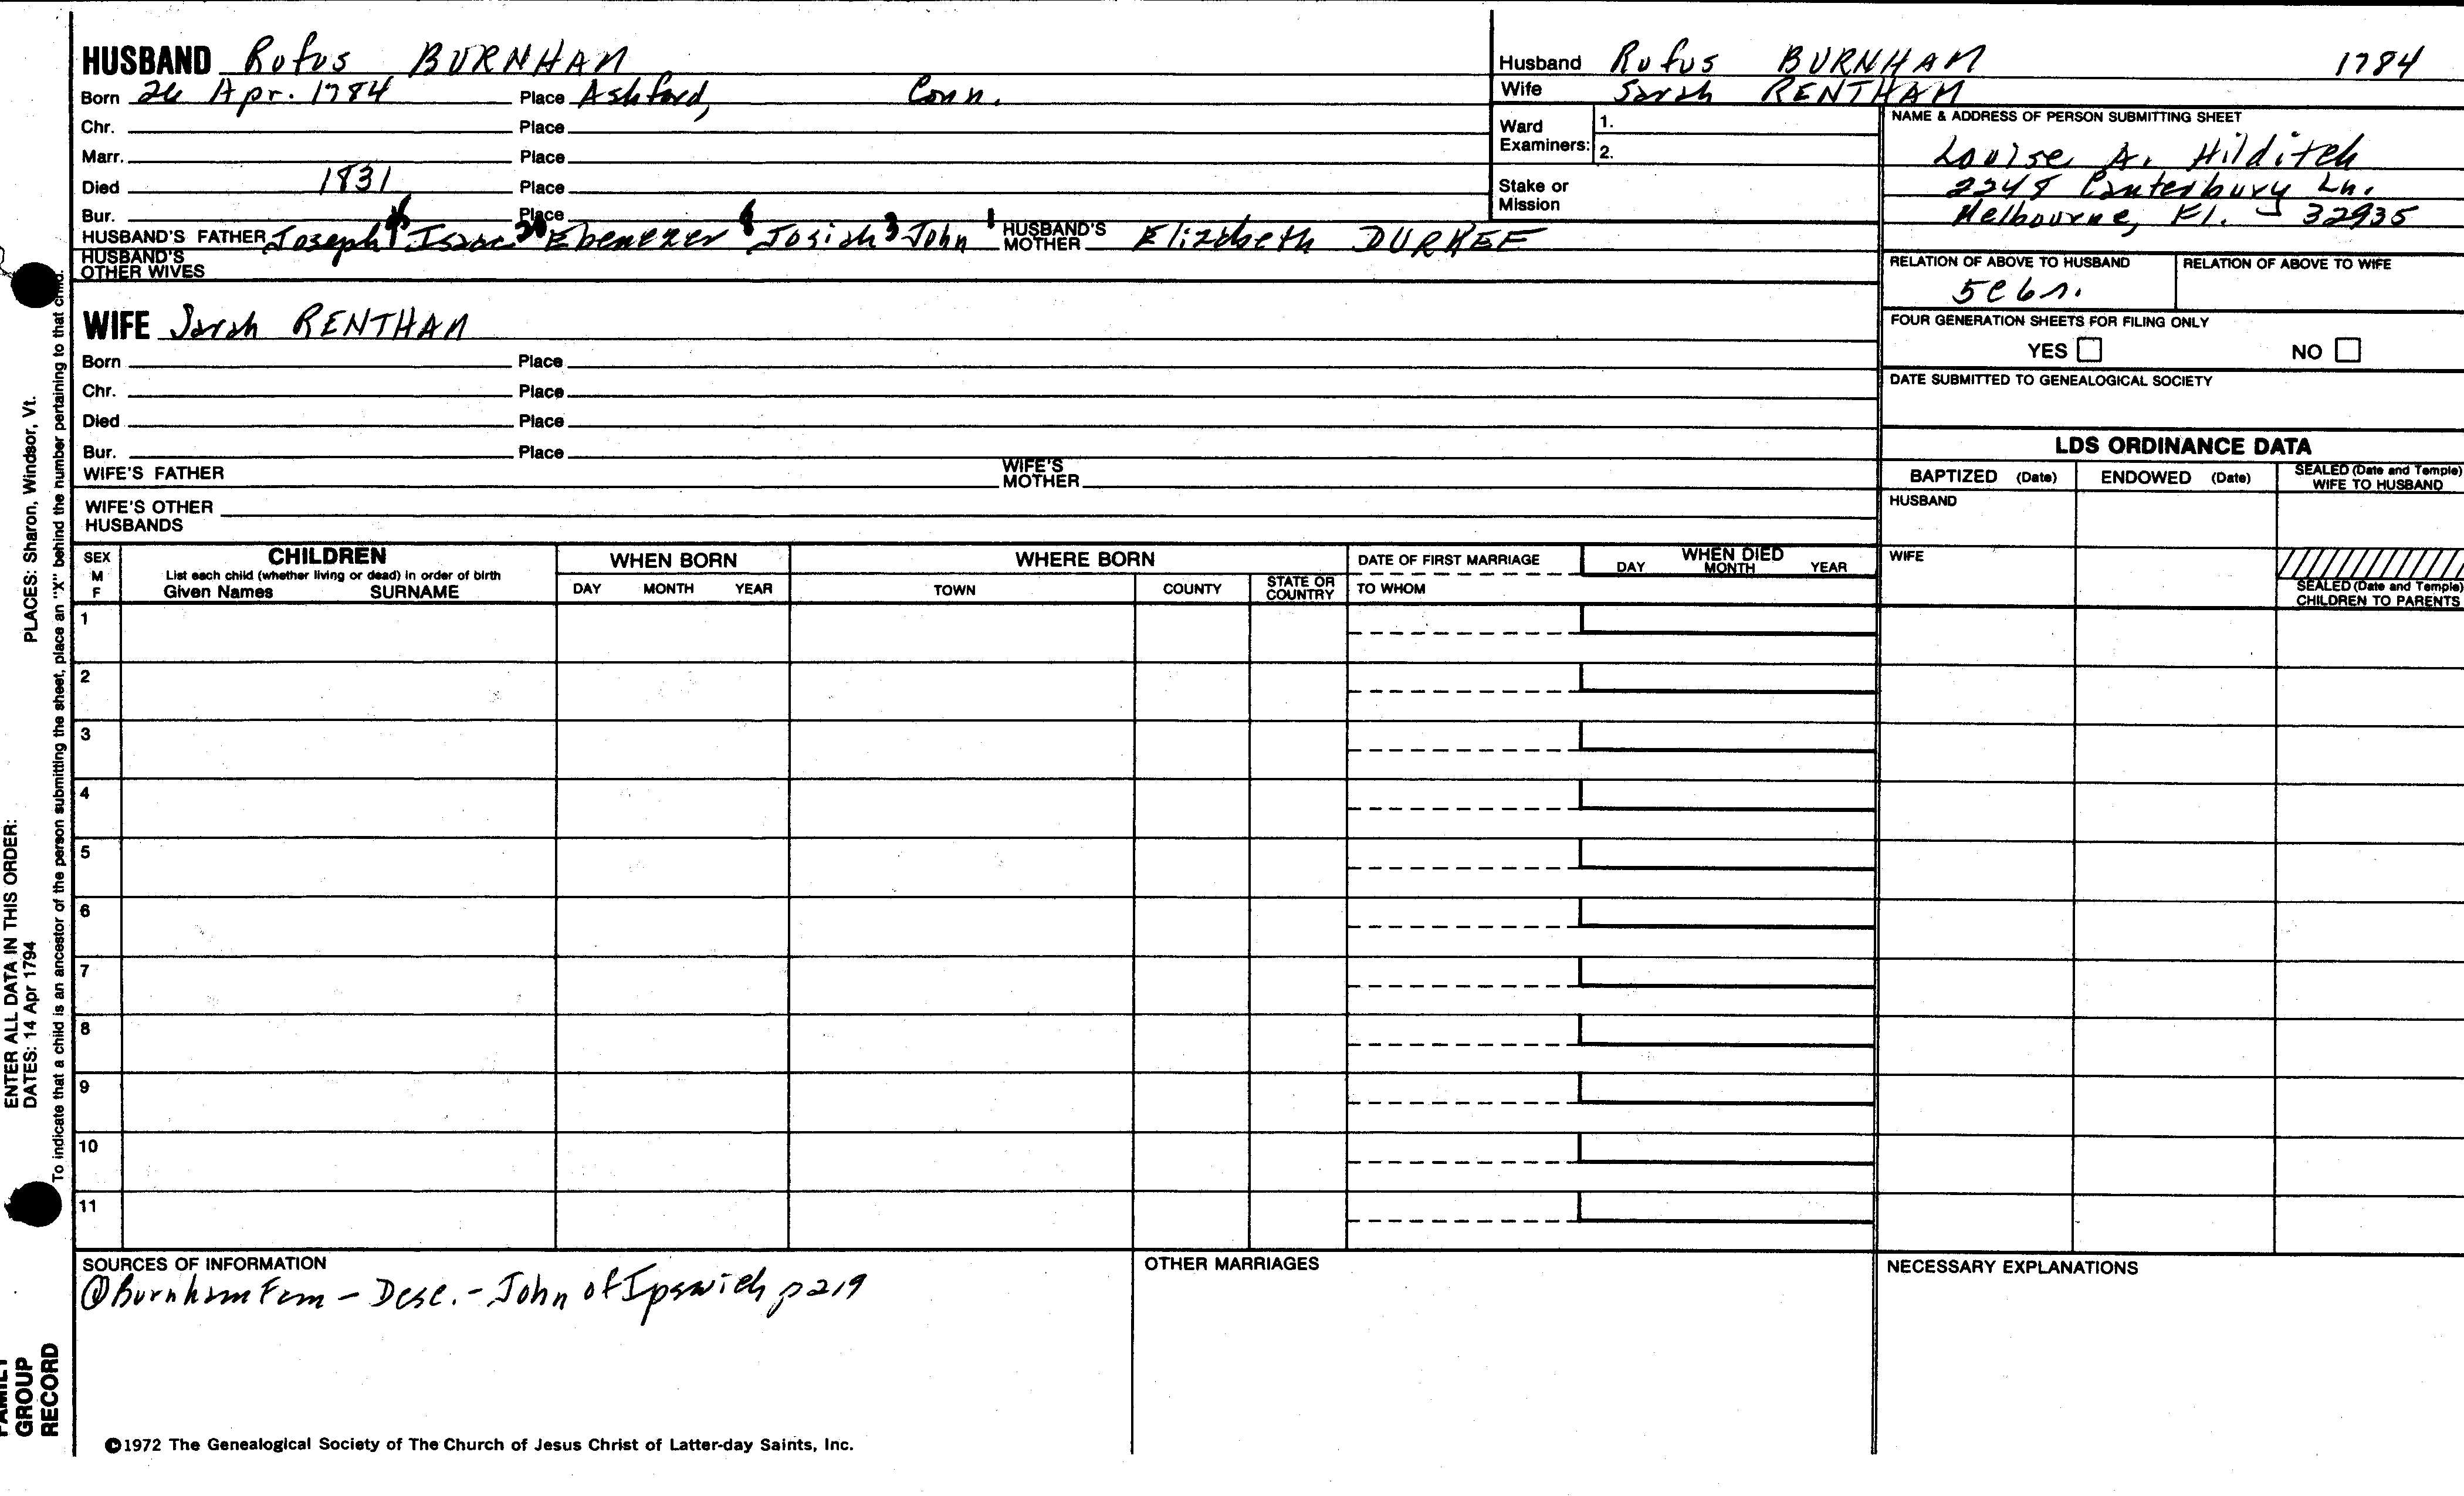 HUSBAND Rufus BURNHAM
Born 26 Apr. 1784 Place Ashford, Conn.
Chr. Place
Marr. Place
Died 1831 Place
Bur. Place
HUSBAND'S FATHER Joseph Isaac Ebenezer Josiah John HUSBAND'S MOTHER Elizabeth DURKEE
HUSBAND'S OTHER WIVES
WIFE Sarah RENTHAM
Born Place
Chr. Place
Died Place
Bur. Place
WIFE'S FATHER WIFE'S MOTHER
WIFE'S OTHER HUSBANDS
Husband Rufus BURNHAM 1784
Wife Sarah RENTHAM
Ward Examiners: 1.
2.
Stake or Mission
NAME & ADDRESS OF PERSON SUBMITTING SHEET
Louise A. Hilditch
2248 Canterbury Ln.
Melbourne, Fl. 32935
RELATION OF ABOVE TO HUSBAND RELATION OF ABOVE TO WIFE
FOUR GENERATION SHEETS FOR FILING ONLY
YES NO
DATE SUBMITTED TO GENEALOGICAL SOCIETY
LDS ORDINANCE DATA
BAPTIZED (Date) ENDOWED (Date) SEALED (Date and Temple) WIFE TO HUSBAND
HUSBAND
WIFE
SEALED (Date and Temple) CHILDREN TO PARENTS
SEX M F CHILDREN WHEN BORN WHERE BORN DATE OF FIRST MARRIAGE WHEN DIED
List each child (whether living or dead) in order of birth
Given Names SURNAME DAY MONTH YEAR TOWN COUNTY STATE OR COUNTRY TO WHOM DAY MONTH YEAR
1
2
3
4
5
6
7
8
9
10
11
SOURCES OF INFORMATION
Burnham Fam - Desc. - John of Ipswich p 219
OTHER MARRIAGES
NECESSARY EXPLANATIONS
©1972 The Genealogical Society of The Church of Jesus Christ of Latter-day Saints, Inc.
FAMILY GROUP RECORD
ENTER ALL DATA IN THIS ORDER:
DATES: 14 Apr 1794 PLACES: Sharon, Windsor, Vt.
To indicate that a child is an ancestor of the person submitting the sheet, place an "X" behind the number pertaining to that child.